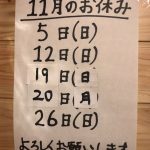 11月のお休み
5日(日)
12日(日)
19日(日)
20日(月)
26日(日)
よろしくお願いします